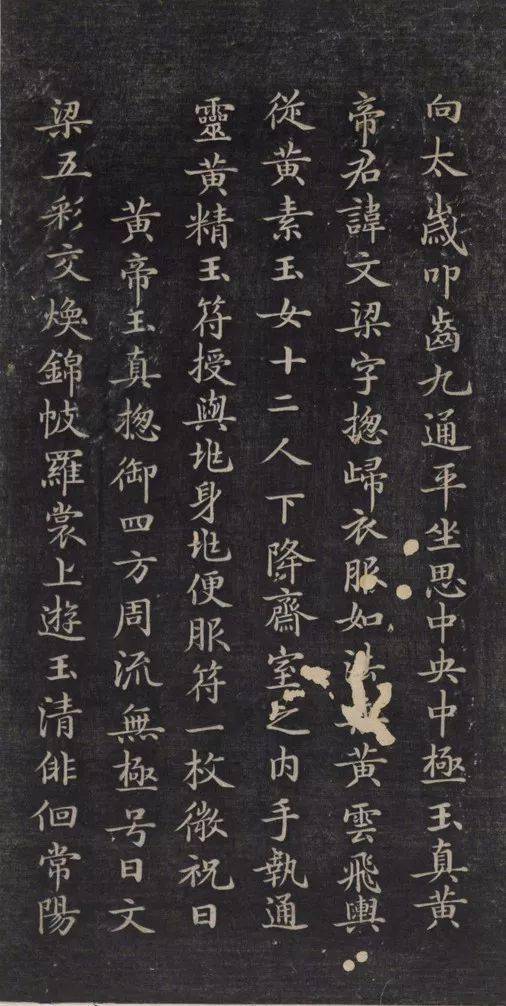 向太歲叩齒九通平坐思中央中極玉真黃
帝君諱文梁字惣歸衣服如法黃雲飛輿
從黃素玉女十二人下降齋室之内手執通
靈黃精玉符授與兆身兆便服符一枚微祝曰
黃帝玉真惣御四方周流無極号曰文
梁五彩交煥錦帔羅裳上遊玉清俳佪常陽